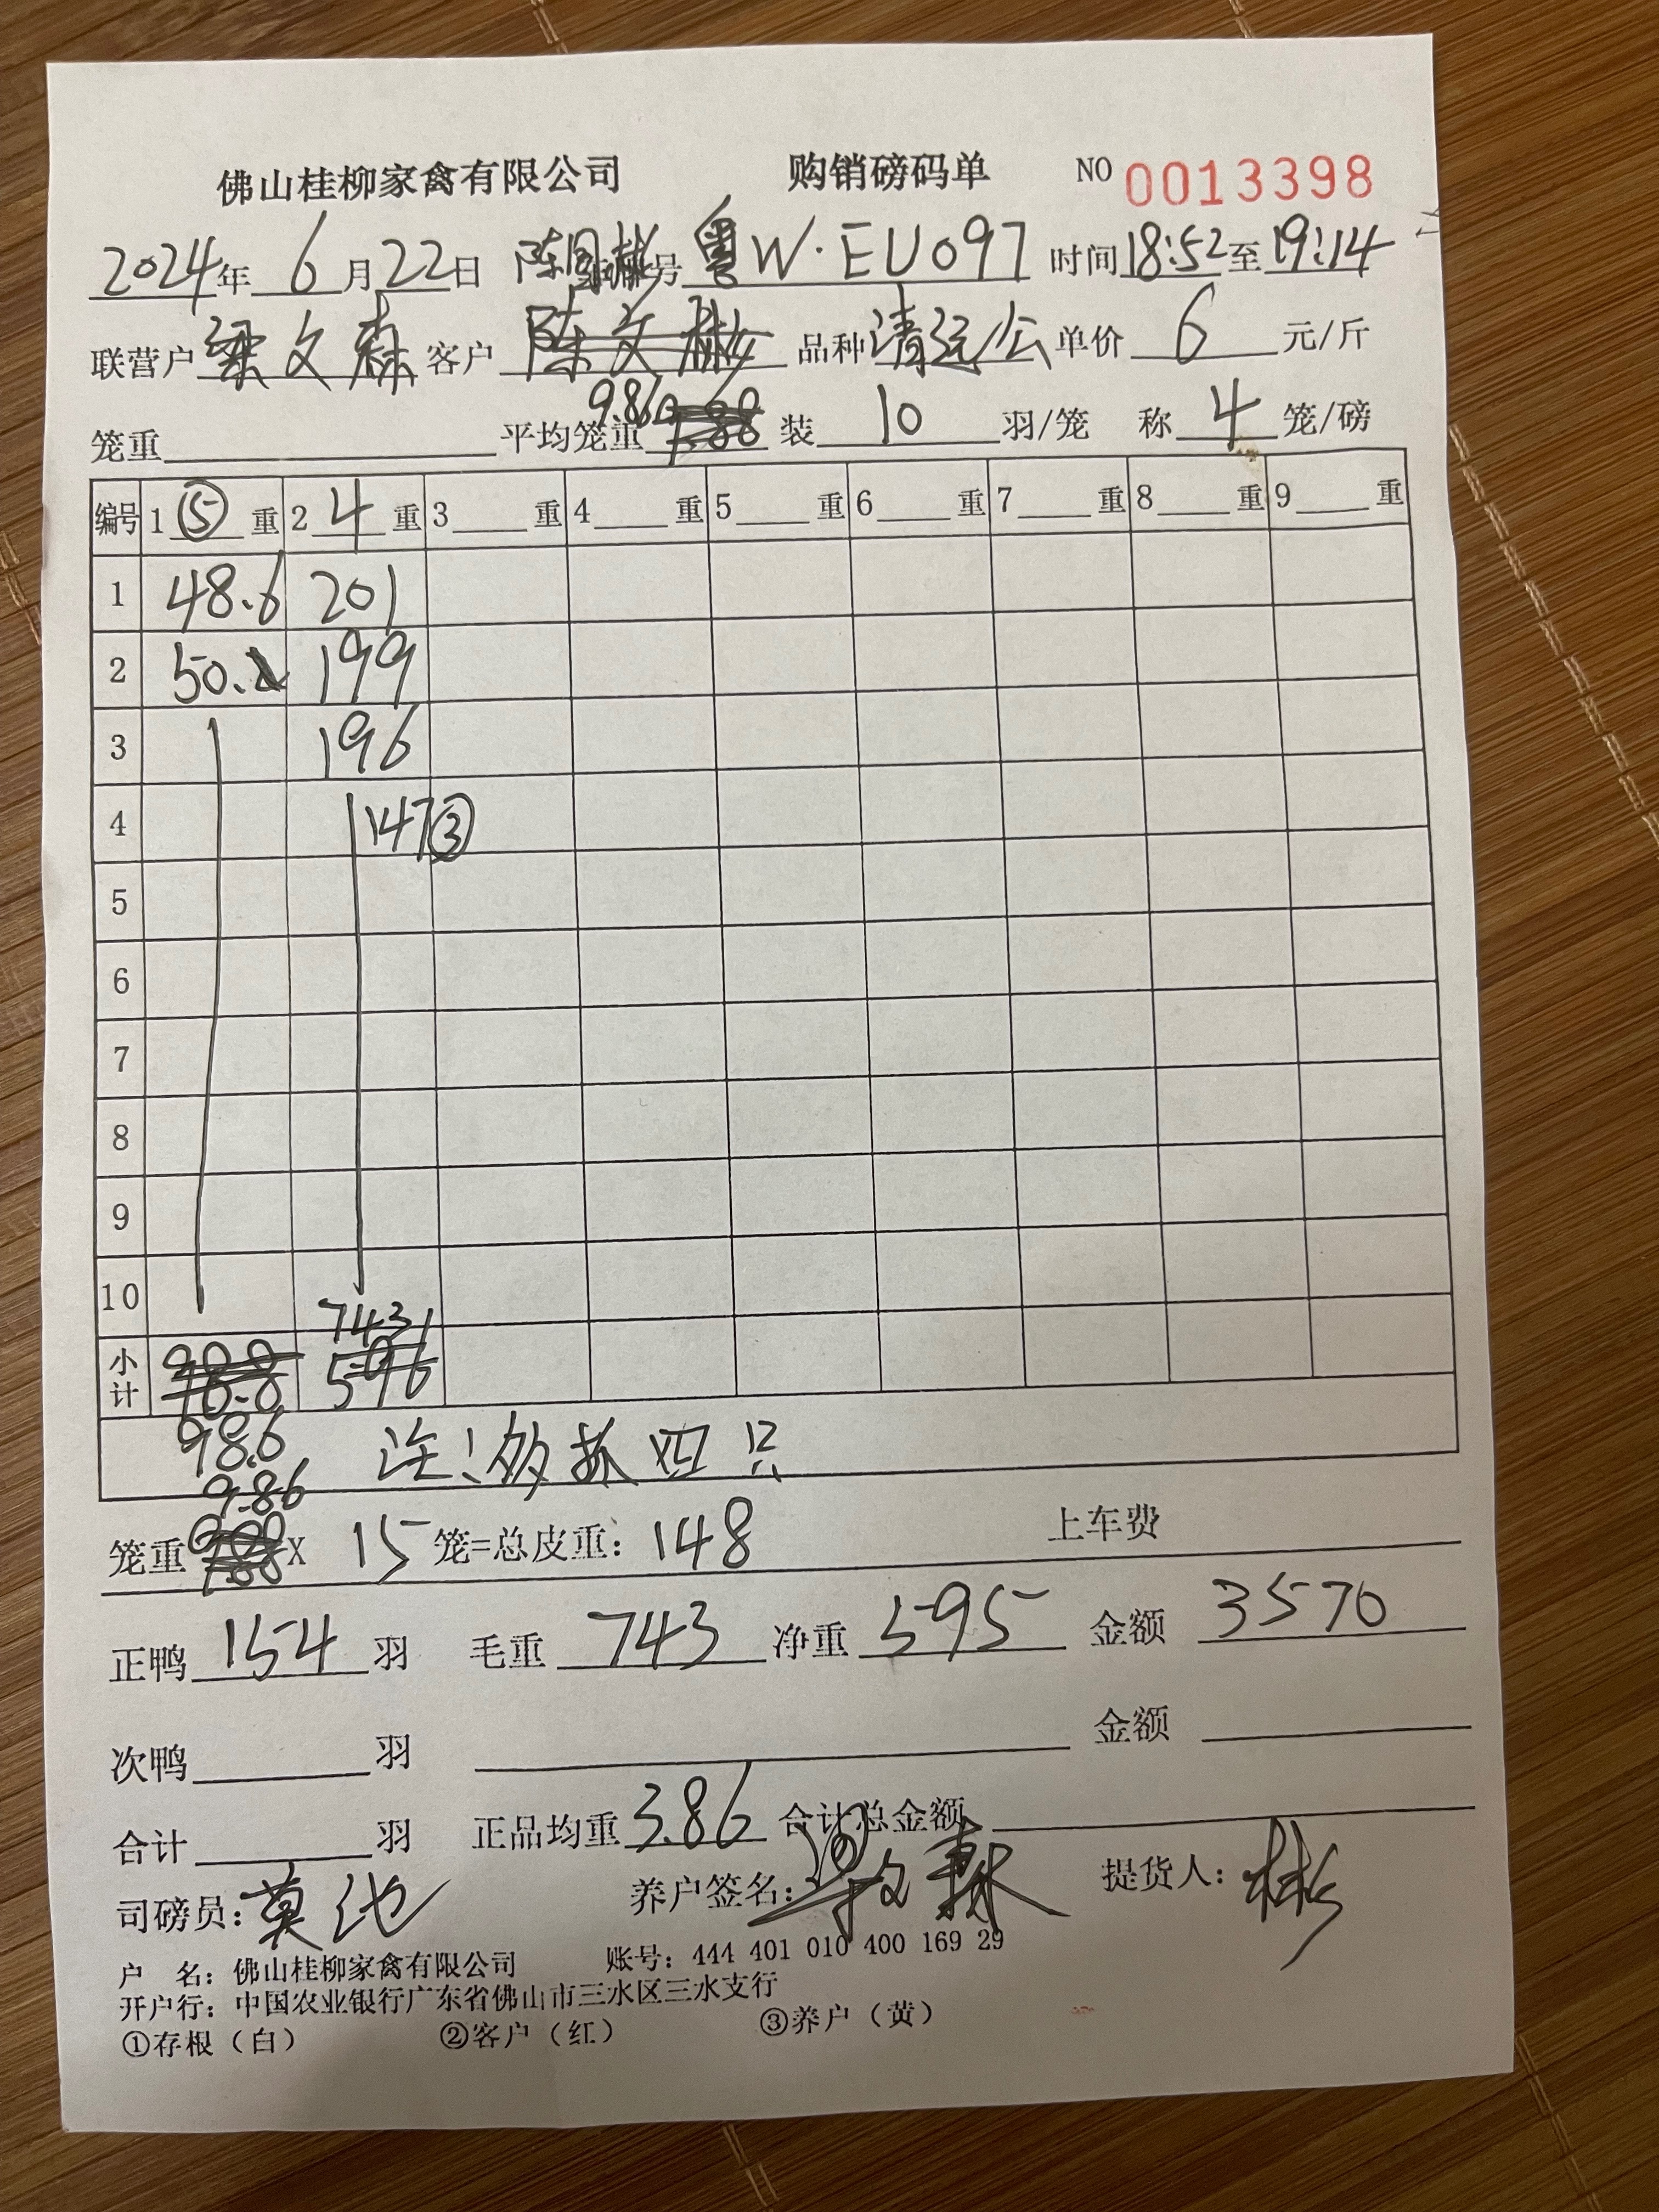 佛山桂柳家禽有限公司 购销磅码单 NO 0013398
2024年 6月22日 陈国彬 号 粤W·EU097 时间18:52至19:14
联营户 梁文森 客户 陈文彬 品种 清远公 单价 6 元/斤
笼重 平均笼重 9.86 装 10 羽/笼 称 4 笼/磅
编号 1 ⑤ 重 2 4 重 3 重 4 重 5 重 6 重 7 重 8 重 9 重
1 48.6 201
2 50. 199
3 196
4 147③
5
6
7
8
9
10
743
小计 98.8 596
98.6 注:多抓四只
9.86
笼重 X 15 笼=总皮重: 148 上车费
正鸭 154 羽 毛重 743 净重 595 金额 3570
次鸭 羽 金额
合计 羽 正品均重 3.86 合计总金额
司磅员: 莫池 养户签名: 梁文森 提货人: 彬
户 名: 佛山桂柳家禽有限公司 账号: 444 401 010 400 169 29
开户行: 中国农业银行广东省佛山市三水区三水支行
①存根(白) ②客户(红) ③养户(黄)